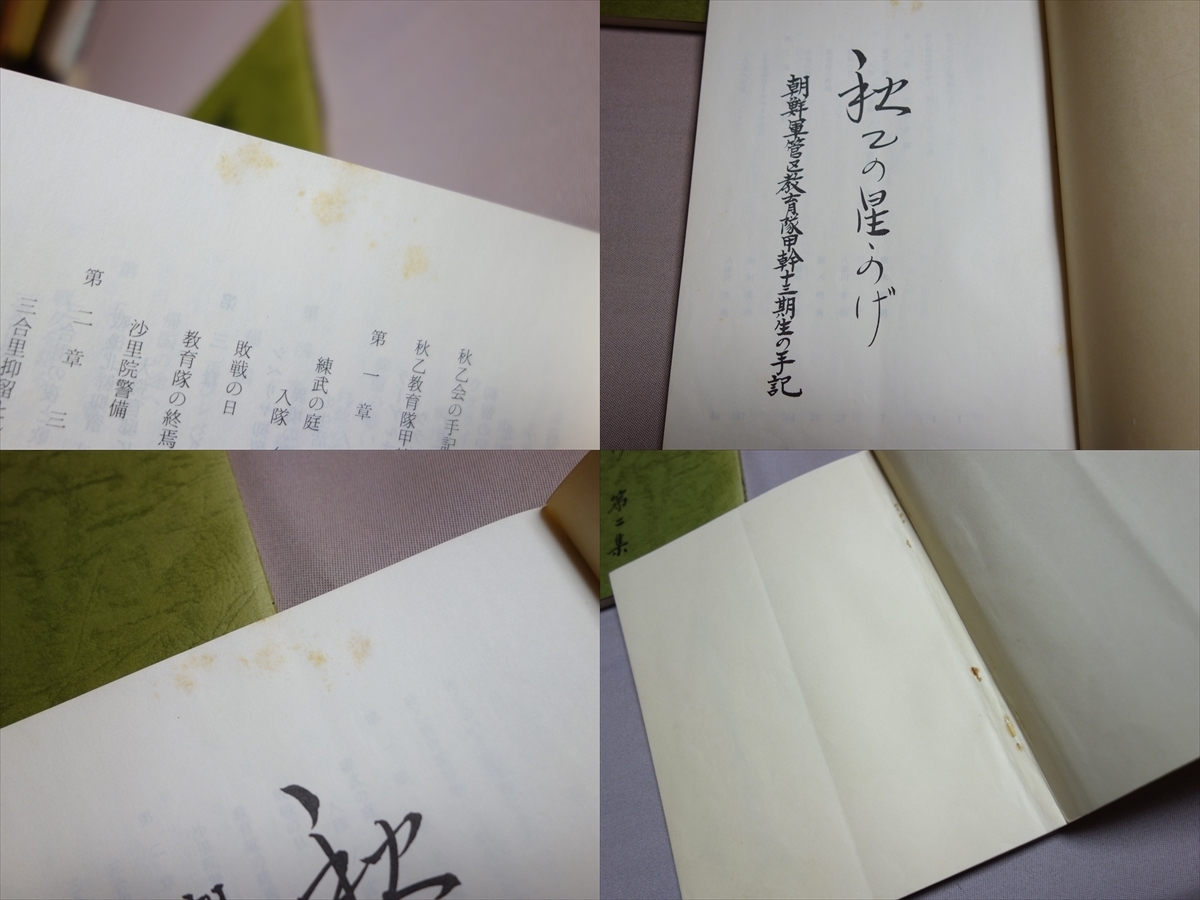 秋乙会の手記
秋乙教育隊甲
第一章
練武の庭
入隊
敗戦の日
教育隊の終焉
沙里院警備
第二章 三
三合里抑留
秋乙の星かげ
朝鮮軍管区教育隊甲幹十三期生の手記
秋
第二集